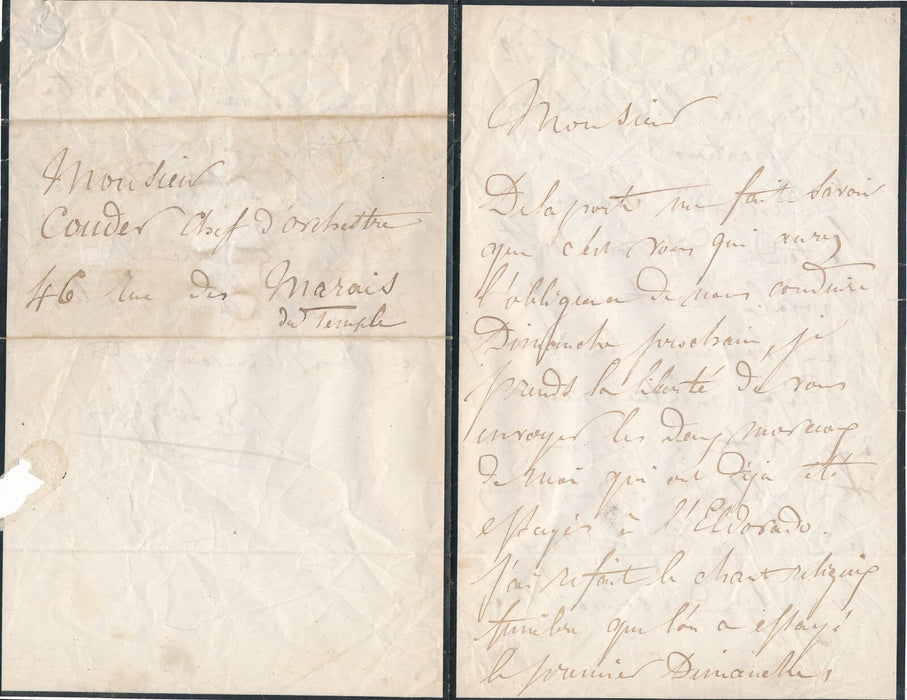 Monsieur
Couder Chef d'orchestre
46 rue des Marais
du Temple
Monsieur
Delaporte me fait savoir
que c'est vous qui aurez
l'obligeance de nous conduire
Dimanche prochain, je
prends la liberté de vous
envoyer les deux morceaux
de moi qui ont déja été
essayés à l'Eldorado.
J'ai refait le chant religieux
funèbre que l'on a essayé
le premier Dimanche,